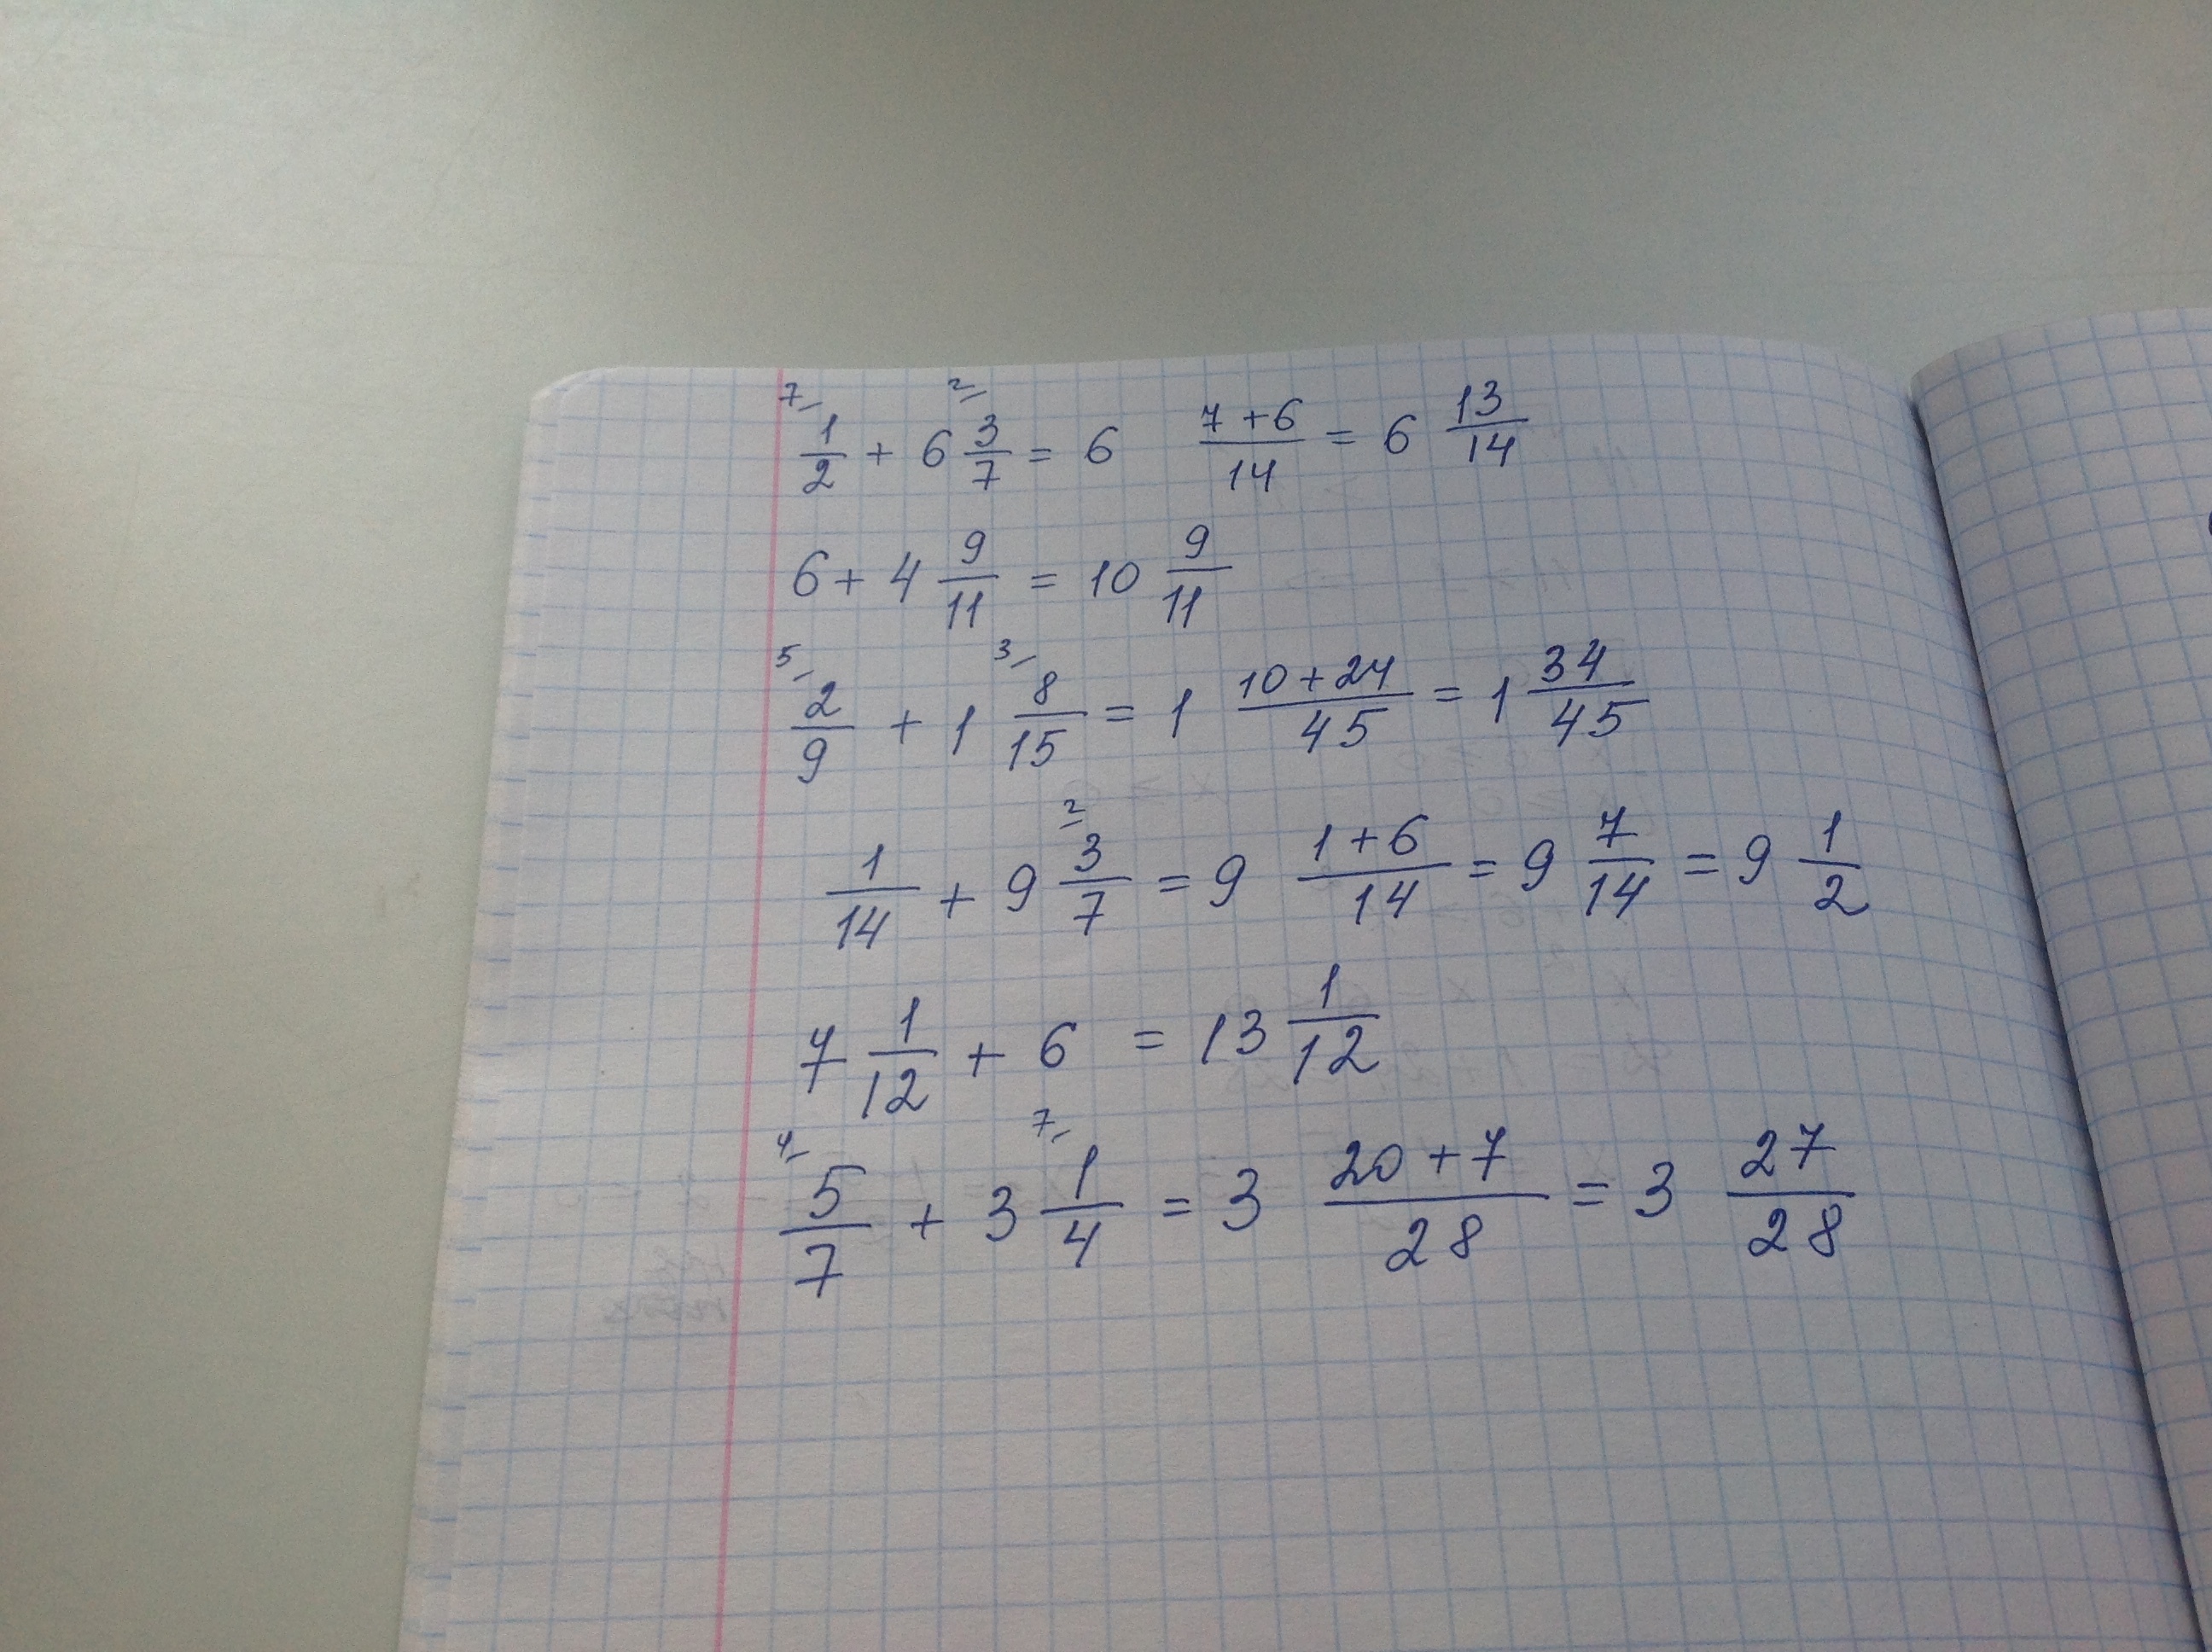 7 2
1/2 + 6 3/7 = 6 (7+6)/14 = 6 13/14
6 + 4 9/11 = 10 9/11
5 3
2/9 + 1 8/15 = 1 (10+24)/45 = 1 34/45
2
1/14 + 9 3/7 = 9 (1+6)/14 = 9 7/14 = 9 1/2
7 1/12 + 6 = 13 1/12
4 7
5/7 + 3 1/4 = 3 (20+7)/28 = 3 27/28